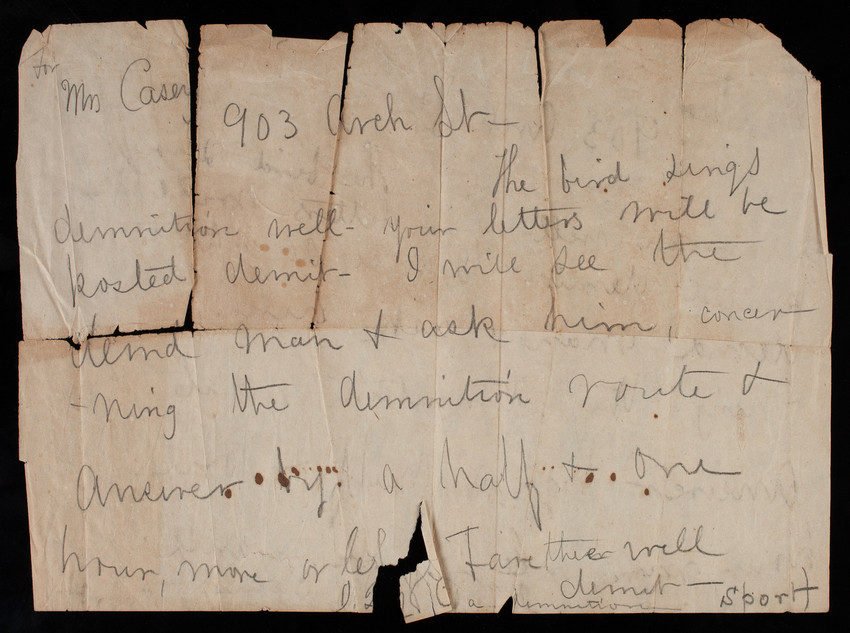 for
Mrs Casey
903 Arch St—
The bird sings
demnition well- your letters will be
posted demit- I will see the
demd man & ask him, concer
-ning the demnition route &
answer by a half & one
hour, more or less Fare thee well
demit—
a demnition Sport